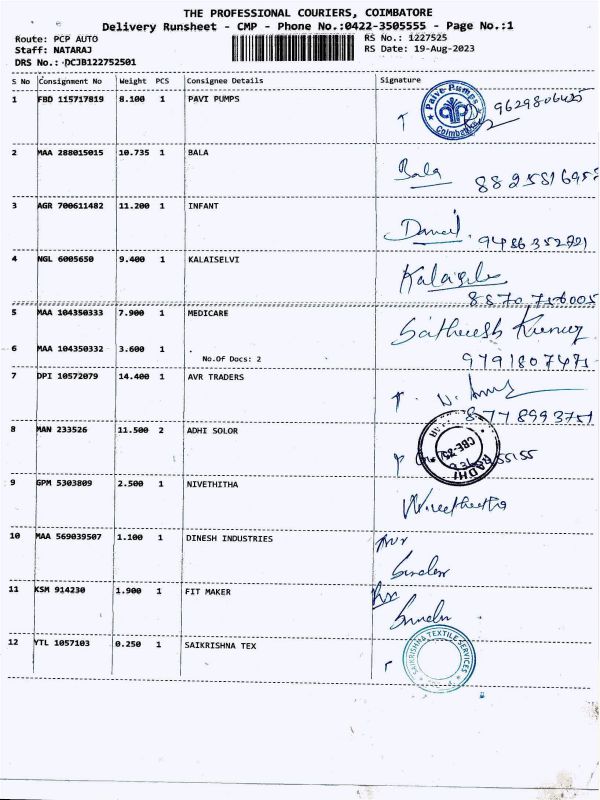 THE PROFESSIONAL COURIERS, COIMBATORE
Delivery Runsheet - CMP - Phone No.:0422-3505555 - Page No.:1
Route: PCP AUTO
Staff: NATARAJ
DRS No.: DCJB122752501
RS No.: 1227525
RS Date: 19-Aug-2023
S No Consignment No Weight PCS Consignee Details Signature
1 FBD 115717819 8.100 1 PAVI PUMPS
Paive Pumps Coimbatore
2 MAA 288015015 10.735 1 BALA
Bala
3 AGR 700611482 11.200 1 INFANT
Daniel
9486352721
4 NGL 6005650 9.400 1 KALAISELVI
8870756005
5 MAA 104350333 7.900 1 MEDICARE
6 MAA 104350332 3.600 1
No.Of Docs: 2
9791807471
7 DPI 10572079 14.400 1 AVR TRADERS
8778993751
8 MAN 233526 11.500 2 ADHI SOLOR
55155
9 GPM 5303809 2.500 1 NIVETHITHA
10 MAA 569039507 1.100 1 DINESH INDUSTRIES
11 KSM 914230 1.900 1 FIT MAKER
12 YTL 1057103 0.250 1 SAIKRISHNA TEX
SAIKRISHNA TEXTILE SERVICES